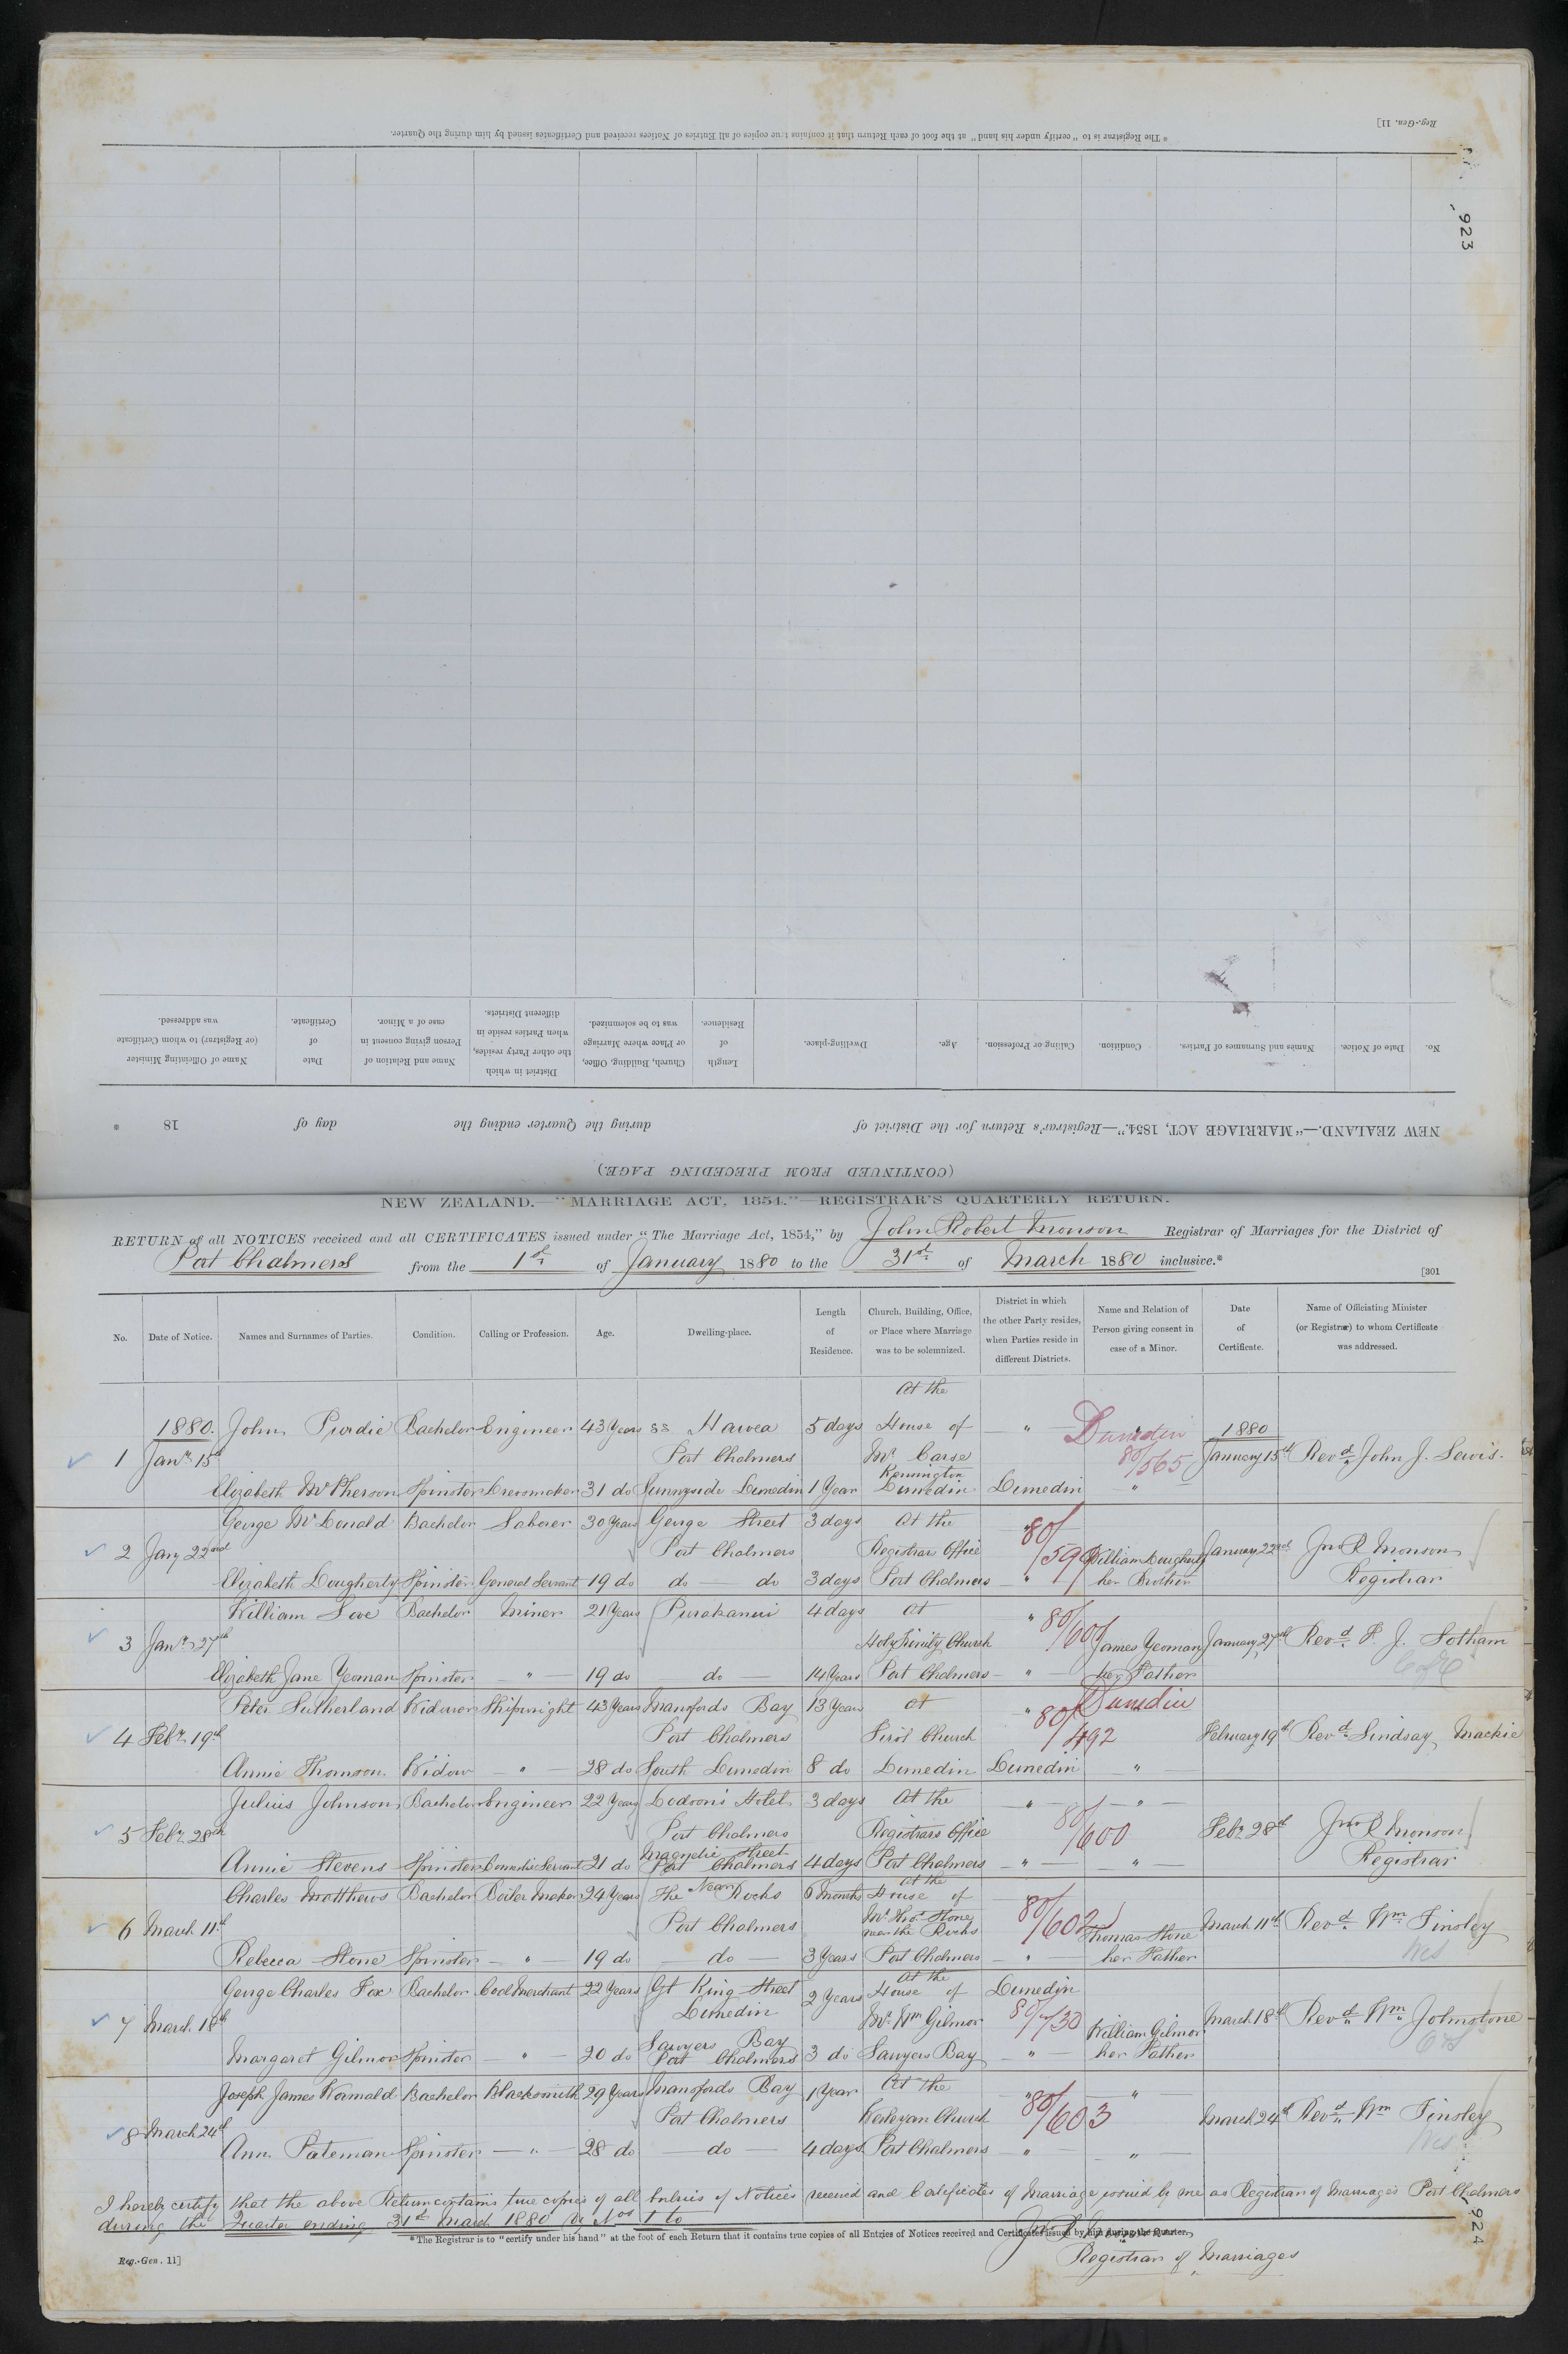 Reg.-Gen. 11]
* The Registrar is to "certify under his hand" at the foot of each Return that it contains true copies of all Entries of Notices received and Certificates issued by him during the Quarter.
923
No.
Date of Notice.
Names and Surnames of Parties.
Condition.
Calling or Profession.
Age.
Dwelling-place.
Length of Residence.
Church, Building, Office, or Place where Marriage was to be solemnized.
District in which the other Party resides, when Parties reside in different Districts.
Name and Relation of Person giving consent in case of a Minor.
Date of Certificate.
Name of Officiating Minister (or Registrar) to whom Certificate was addressed.
NEW ZEALAND.—"MARRIAGE ACT, 1854."—Registrar's Return for the District of during the Quarter ending the day of 18 *
(CONTINUED FROM PRECEDING PAGE.)
NEW ZEALAND.—"MARRIAGE ACT, 1854."—REGISTRAR'S QUARTERLY RETURN.
RETURN of all NOTICES received and all CERTIFICATES issued under "The Marriage Act, 1854," by John Robert Monson Registrar of Marriages for the District of
Port Chalmers from the 1st of January 1880 to the 31st of March 1880 inclusive.*
[301
No. Date of Notice. Names and Surnames of Parties. Condition. Calling or Profession. Age. Dwelling-place. Length of Residence. Church, Building, Office, or Place where Marriage was to be solemnized. District in which the other Party resides, when Parties reside in different Districts. Name and Relation of Person giving consent in case of a Minor. Date of Certificate. Name of Officiating Minister (or Registrar) to whom Certificate was addressed.
At the
1880. John Purdie Bachelor Engineer 43 Years ss Hawea 5 days House of " Dunedin 1880
1 Jany 15th Port Chalmers Mr Carse 80/565 January 15th Revd John J. Lewis.
Kennington
Elizabeth McPherson Spinster Dressmaker 31 do Sunnyside Dunedin 1 Year Dunedin Dunedin "
George McDonald Bachelor Laborer 30 Years George Street 3 days At the "
2 Jany 22nd Port Chalmers Registrars Office 80/599 William Dougherty January 22nd Jno R Monson
Elizabeth Dougherty Spinster General Servant 19 do do do 3 days Port Chalmers " her Brother Registrar
William Love Bachelor Miner 21 Years Purakanui 4 days At "
3 Jany 27th Holy Trinity Church 80/601 James Yeoman January 27th Revd F. J. Sotham
Elizabeth Jane Yeoman Spinster " 19 do do 14 Years Port Chalmers " her Father CofE
Peter Sutherland Widower Shipwright 43 Years Mansfords Bay 13 Years at " Dunedin
4 Feby 19th Port Chalmers First Church 80/492 February 19th Revd Lindsay Mackie
Annie Thomson Widow " 28 do South Dunedin 8 do Dunedin Dunedin "
Julius Johnson Bachelor Engineer 22 Years Dodson's Hotel 3 days At the " "
5 Feby 28th Port Chalmers Registrars Office 80/600 Feby 28th Jno R Monson
Magnetic Street
Annie Stevens Spinster Domestic Servant 21 do Port Chalmers 4 days Port Chalmers " " Registrar
At the
Charles Matthews Bachelor Boiler Maker 24 Years Near The Rocks 6 Months House of
6 March 11th Port Chalmers Mr Thos Stone 80/602 March 11th Revd Wm Tinsley
near the Rocks Thomas Stone
Rebecca Stone Spinster " 19 do do 3 Years Port Chalmers " her Father Wes
At the
George Charles Fox Bachelor Coal Merchant 22 Years Gt King Street 2 Years House of Dunedin
7 March 18th Dunedin Mr Wm Gilmor William Gilmor March 18th Revd Wm Johnstone
Sawyers Bay
Margaret Gilmor Spinster " 20 do Port Chalmers 3 do Sawyers Bay " her Father
Joseph James Wormald Bachelor Blacksmith 29 Years Mansfords Bay 1 Year At the " "
8 March 24th Port Chalmers Wesleyan Church 80/603 March 24th Revd Wm Tinsley
Ann Pateman Spinster " 28 do do 4 days Port Chalmers " " Wes
I hereby certify that the above Return contains true copies of all Entries of Notices received and Certificates of Marriage issued by me as Registrar of Marriages Port Chalmers
during the Quarter ending 31st March 1880 Nos 1 to
* The Registrar is to "certify under his hand" at the foot of each Return that it contains true copies of all Entries of Notices received and Certificates issued by him during the Quarter.
Jno R Monson
Registrar of Marriages
Reg.-Gen. 11]
924